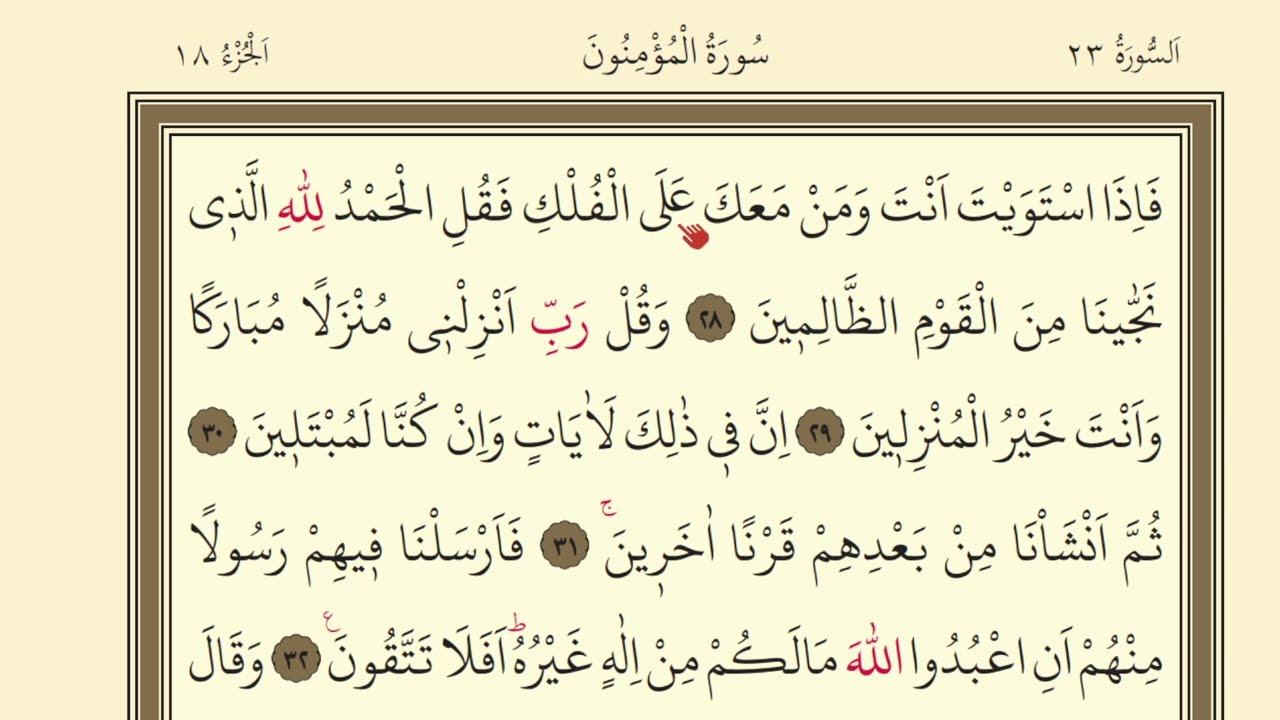 اَلسُّورَةُ ٢٣ سُورَةُ الْمُؤْمِنُونَ اَلْجُزْءُ ١٨
فَاِذَا اسْتَوَيْتَ اَنْتَ وَمَنْ مَعَكَ عَلَى الْفُلْكِ فَقُلِ الْحَمْدُ لِلّٰهِ الَّذٖى
نَجّٰينَا مِنَ الْقَوْمِ الظَّالِمٖينَ ٢٨ وَقُلْ رَبِّ اَنْزِلْنٖى مُنْزَلًا مُبَارَكًا
وَاَنْتَ خَيْرُ الْمُنْزِلٖينَ ٢٩ اِنَّ فٖى ذٰلِكَ لَاٰيَاتٍ وَاِنْ كُنَّا لَمُبْتَلٖينَ ٣٠
ثُمَّ اَنْشَاْنَا مِنْ بَعْدِهِمْ قَرْنًا اٰخَرٖينَۚ ٣١ فَاَرْسَلْنَا فٖيهِمْ رَسُولًا
مِنْهُمْ اَنِ اعْبُدُوا اللّٰهَ مَالَكُمْ مِنْ اِلٰهٍ غَيْرُهُؕ اَفَلَا تَتَّقُونَ ع ٣٢ وَقَالَ